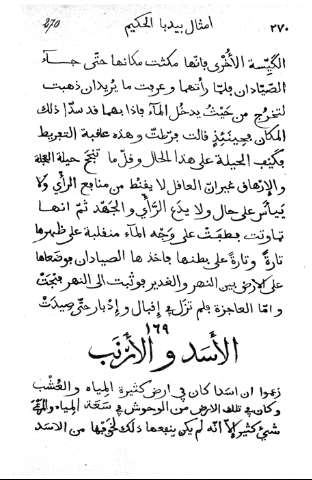 270 امثال بيدبا الحكيم ٢٧٠
الكيّسة الأُخرى فإنها مكثت مكانها حتّى جاء
الصيّادان فلمّا رأتهما وعرفت ما يُريدان ذهبت
لتخرج من حَيْثُ يدخُل المآء فإذا بهما قد سدّا ذلك
المكان فحينئذٍ قالت فرّطتُ وهذه عاقبة التفريط
فكيف الحيلة على هذا الحال وقلّ ما تنجح حيلة العجلة
والإرهاق غير ان العاقل لا يقنُط من منافع الرأي ولا
ييأس على حال ولا يدع الرَّأيَ والجَهْد ثمّ انها
تماوتت فطفت على وَجْه المآء منقلبة على ظهرها
تارةً وتارةً على بطنها فاخذها الصيادان فوضعاها
على الارض بين النهر والغدير فوثبت الى النهر فنجَتْ
وامّا العاجزة فلم تزل في إقبال وإدبار حتّى صيدَتْ
١٦٩
الأسَد والأرنَب
زعموا ان اسدا كان في ارض كثيرة المِياه والعُشْب
وكان في تلك الارض من الوحوش في سَعَة المِياه والمرْعَى
شيئ كثير إلاّ انّه لم يكن ينفعها ذلك لخَوْفِها من الاسد